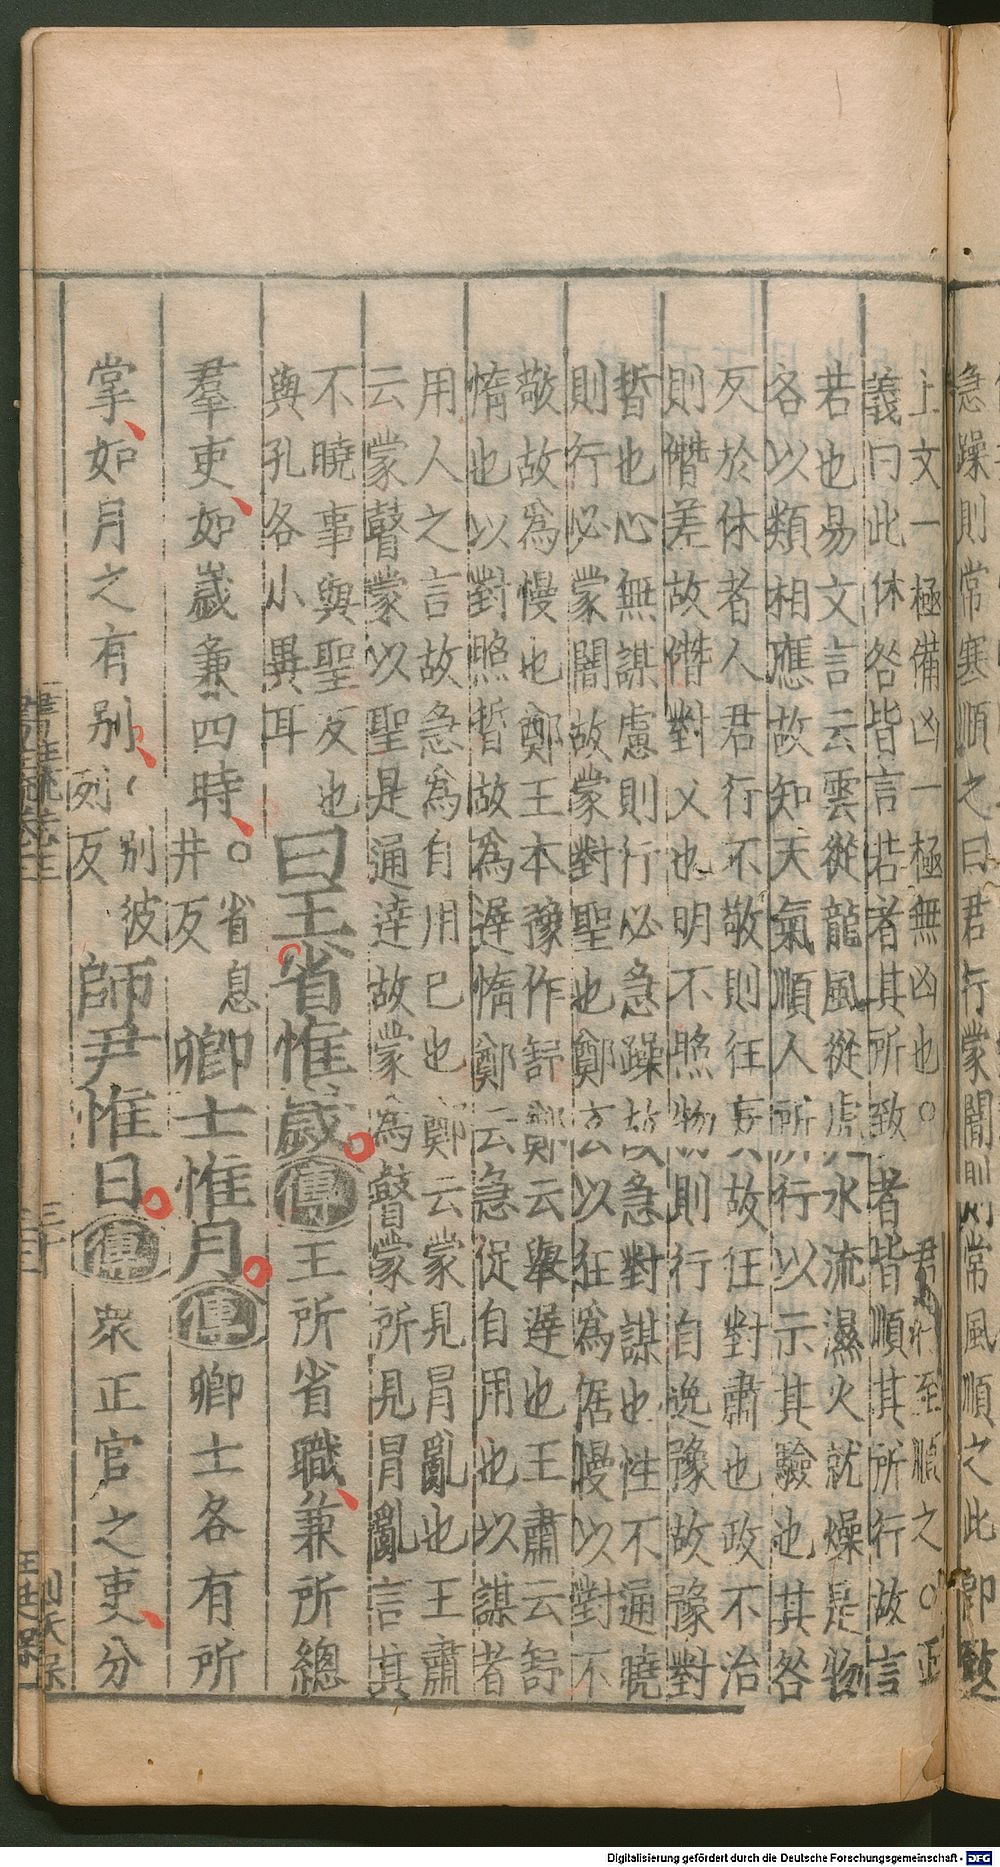 急躁則常寒順之曰君行蒙闇則常風順之此即
上文一極備凶一極無凶也○君行至順之○正
義曰此休咎皆言若者其所致者皆順其所行故言
若也易文言云雲從龍風從虎水流濕火就燥是物
各以類相應故知天氣順人所行以示其驗也其咎
反於休者人君行不敬則狂妄故狂對肅也政不治
則僭差故僭對乂也明不照物則行自逸豫故豫對
晢也心無謀慮則行必急躁故急對謀也性不通曉
則行必蒙闇故蒙對聖也鄭玄以狂為倨慢以對不
敬故為慢也鄭王本豫作舒鄭云舉遲也王肅云舒
惰也以對照晢故為遲惰鄭云急促自用也以謀者
用人之言故急為自用己也鄭云蒙見冒亂也王肅
云蒙瞽蒙以聖是通達故蒙為瞽蒙所見冒亂言其
不曉事與聖反也
與孔各小異耳
曰王省惟歲傳王所省職兼所總
羣吏如歲兼四時○省息
井反
卿士惟月傳卿士各有所
掌如月之有別別彼
列反
師尹惟日傳衆正官之吏分
Digitalisierung gefördert durch die Deutsche Forschungsgemeinschaft - DFG